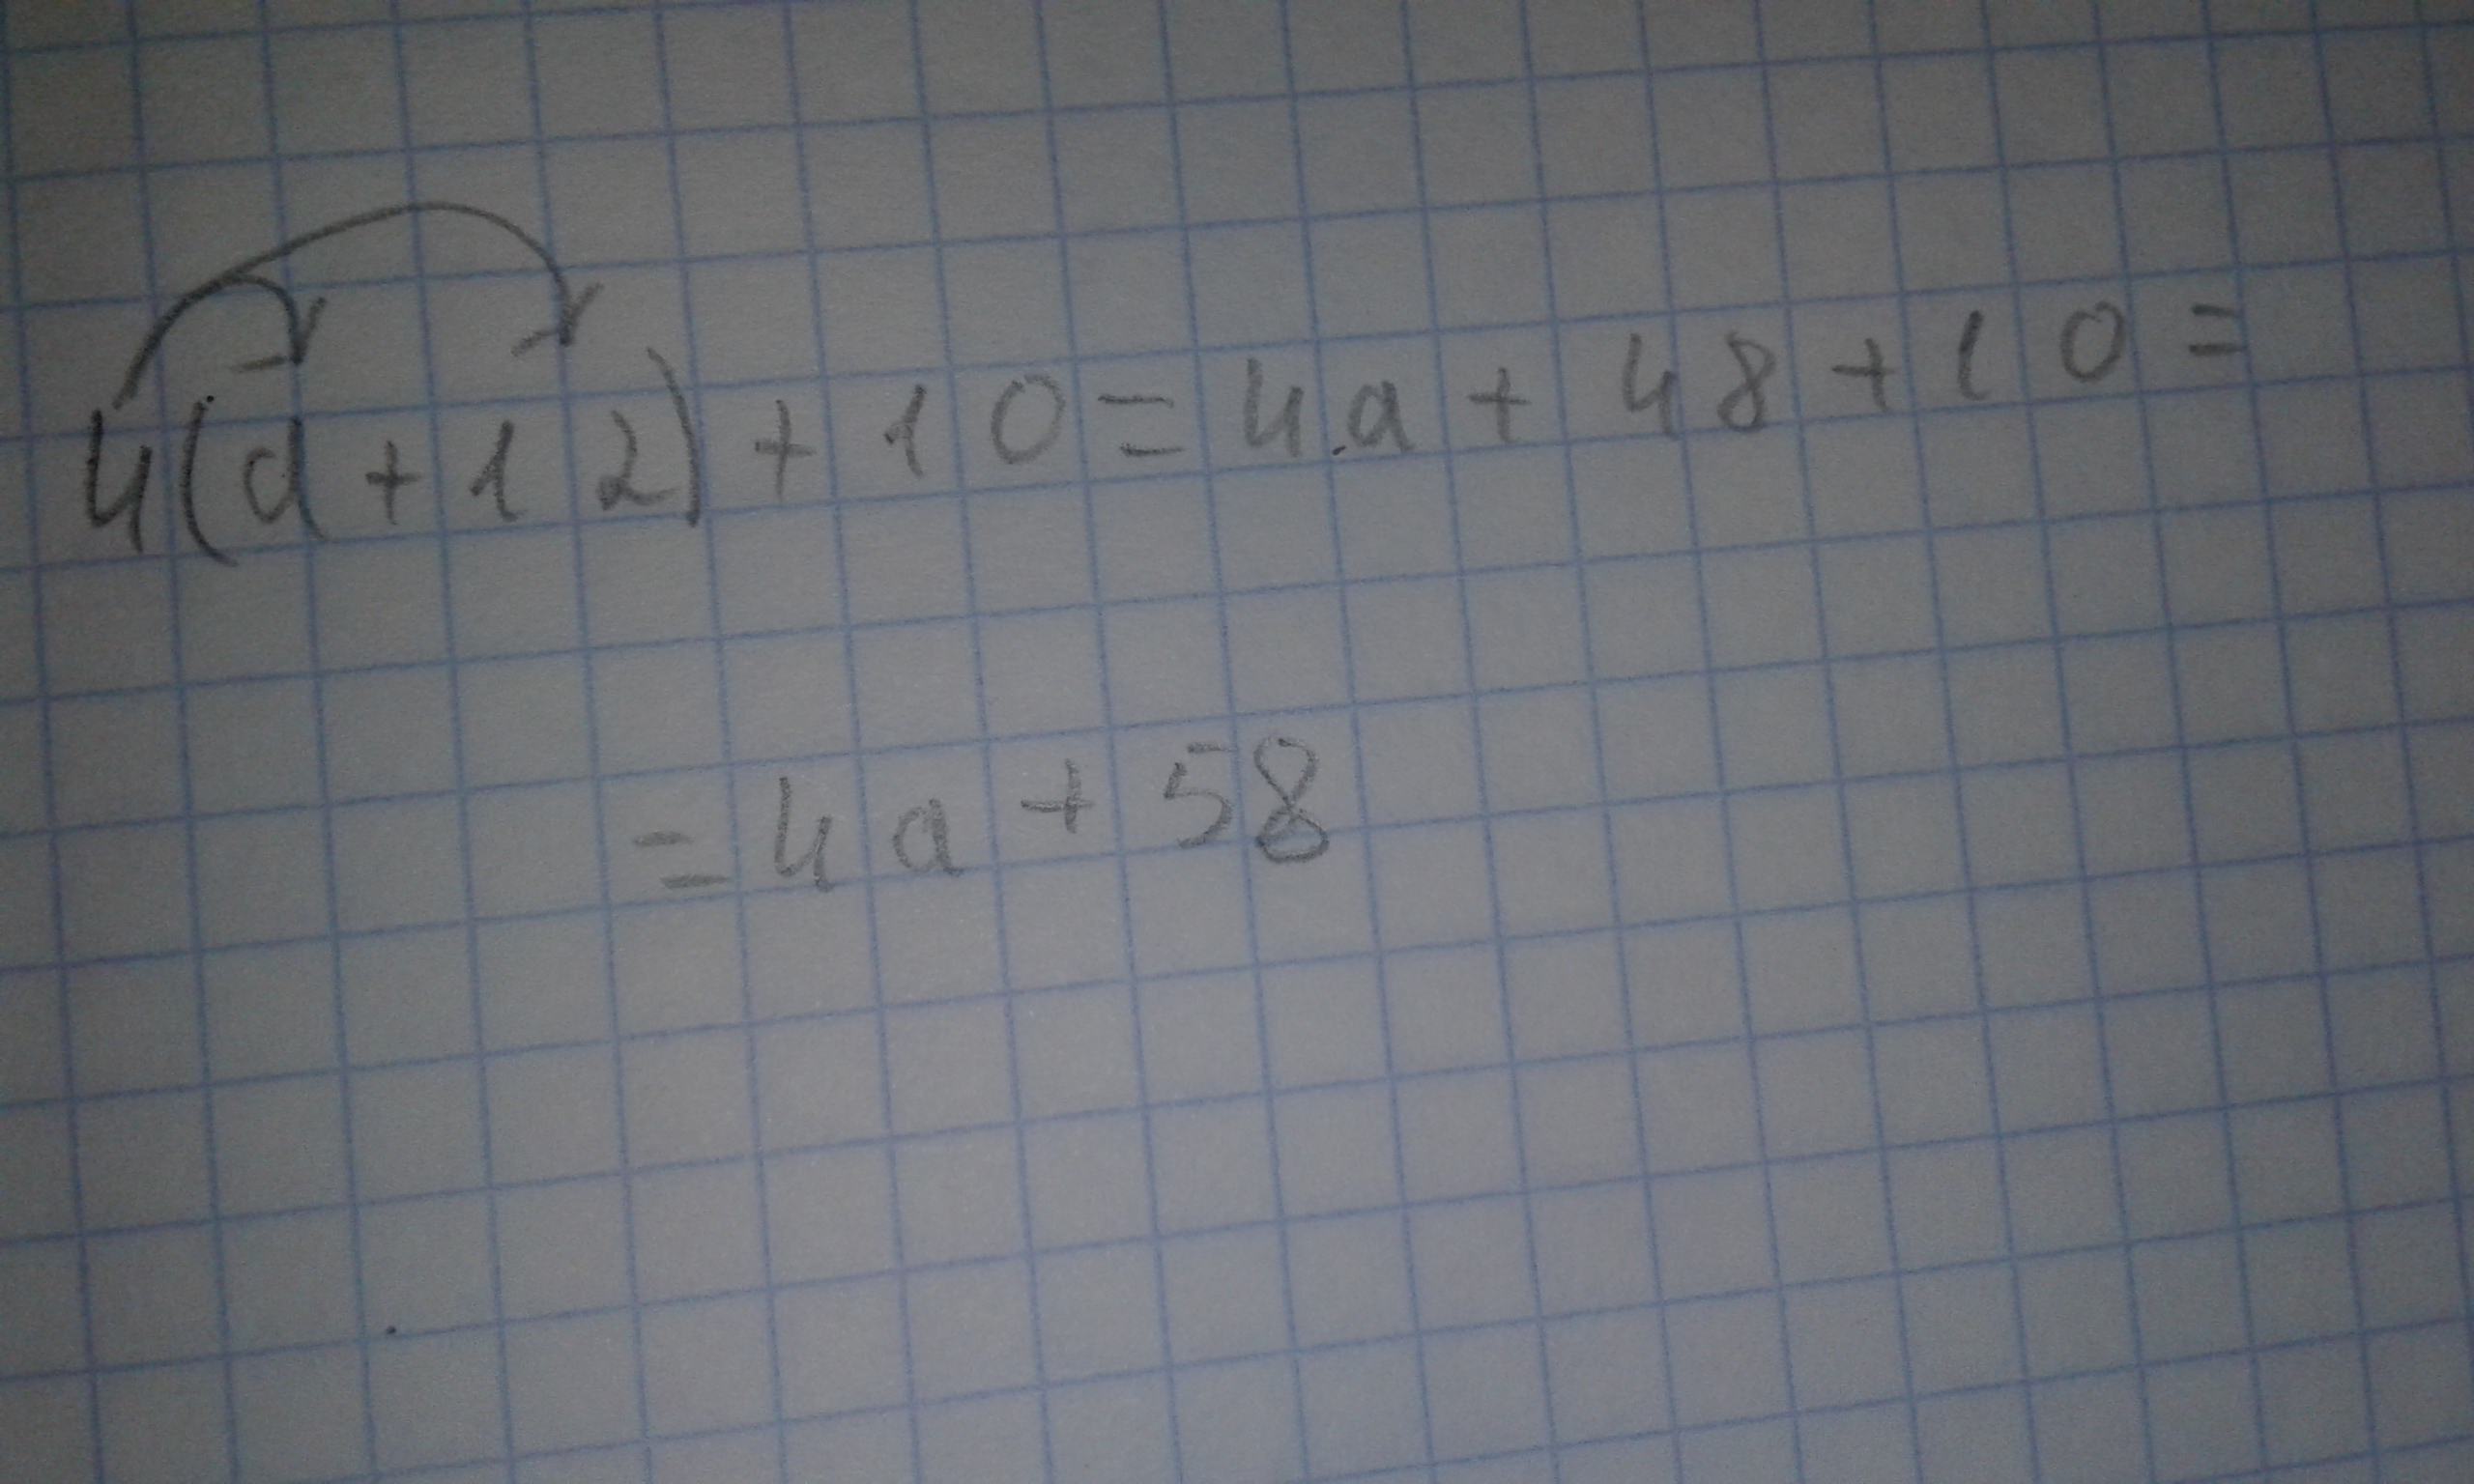 4(a+12)+10=4a+48+10=
=4a+58